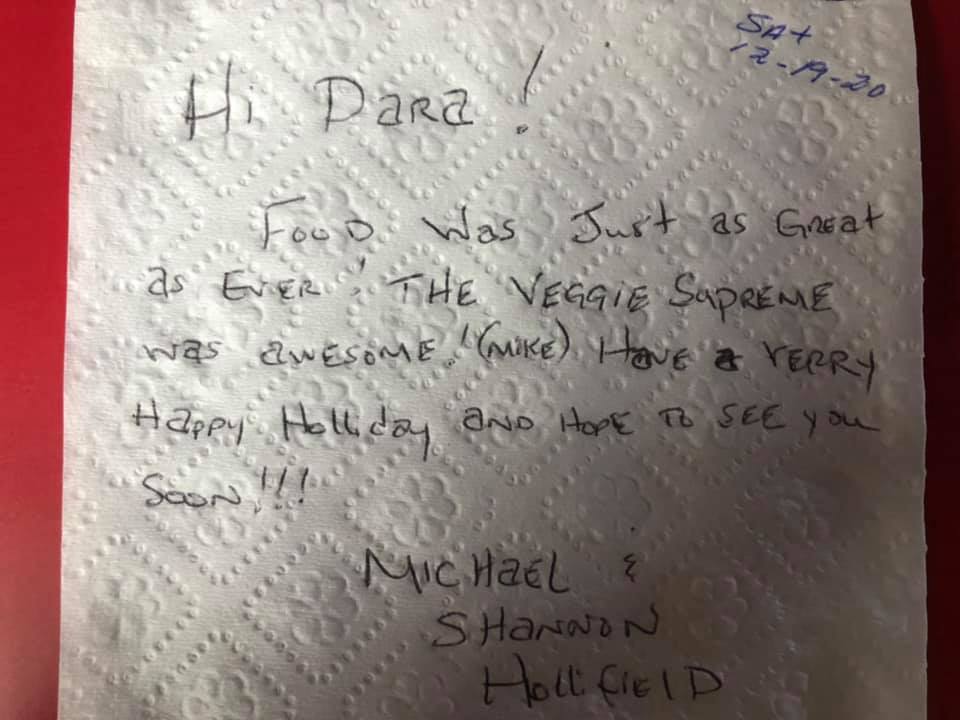 Sat
12-19-20
Hi Dara!
Food was Just as Great
as Ever! The Veggie Supreme
was awesome! (Mike) Have a verry
Happy Holliday and Hope to see you
Soon!!!
Michael &
Shannon
Hollifield